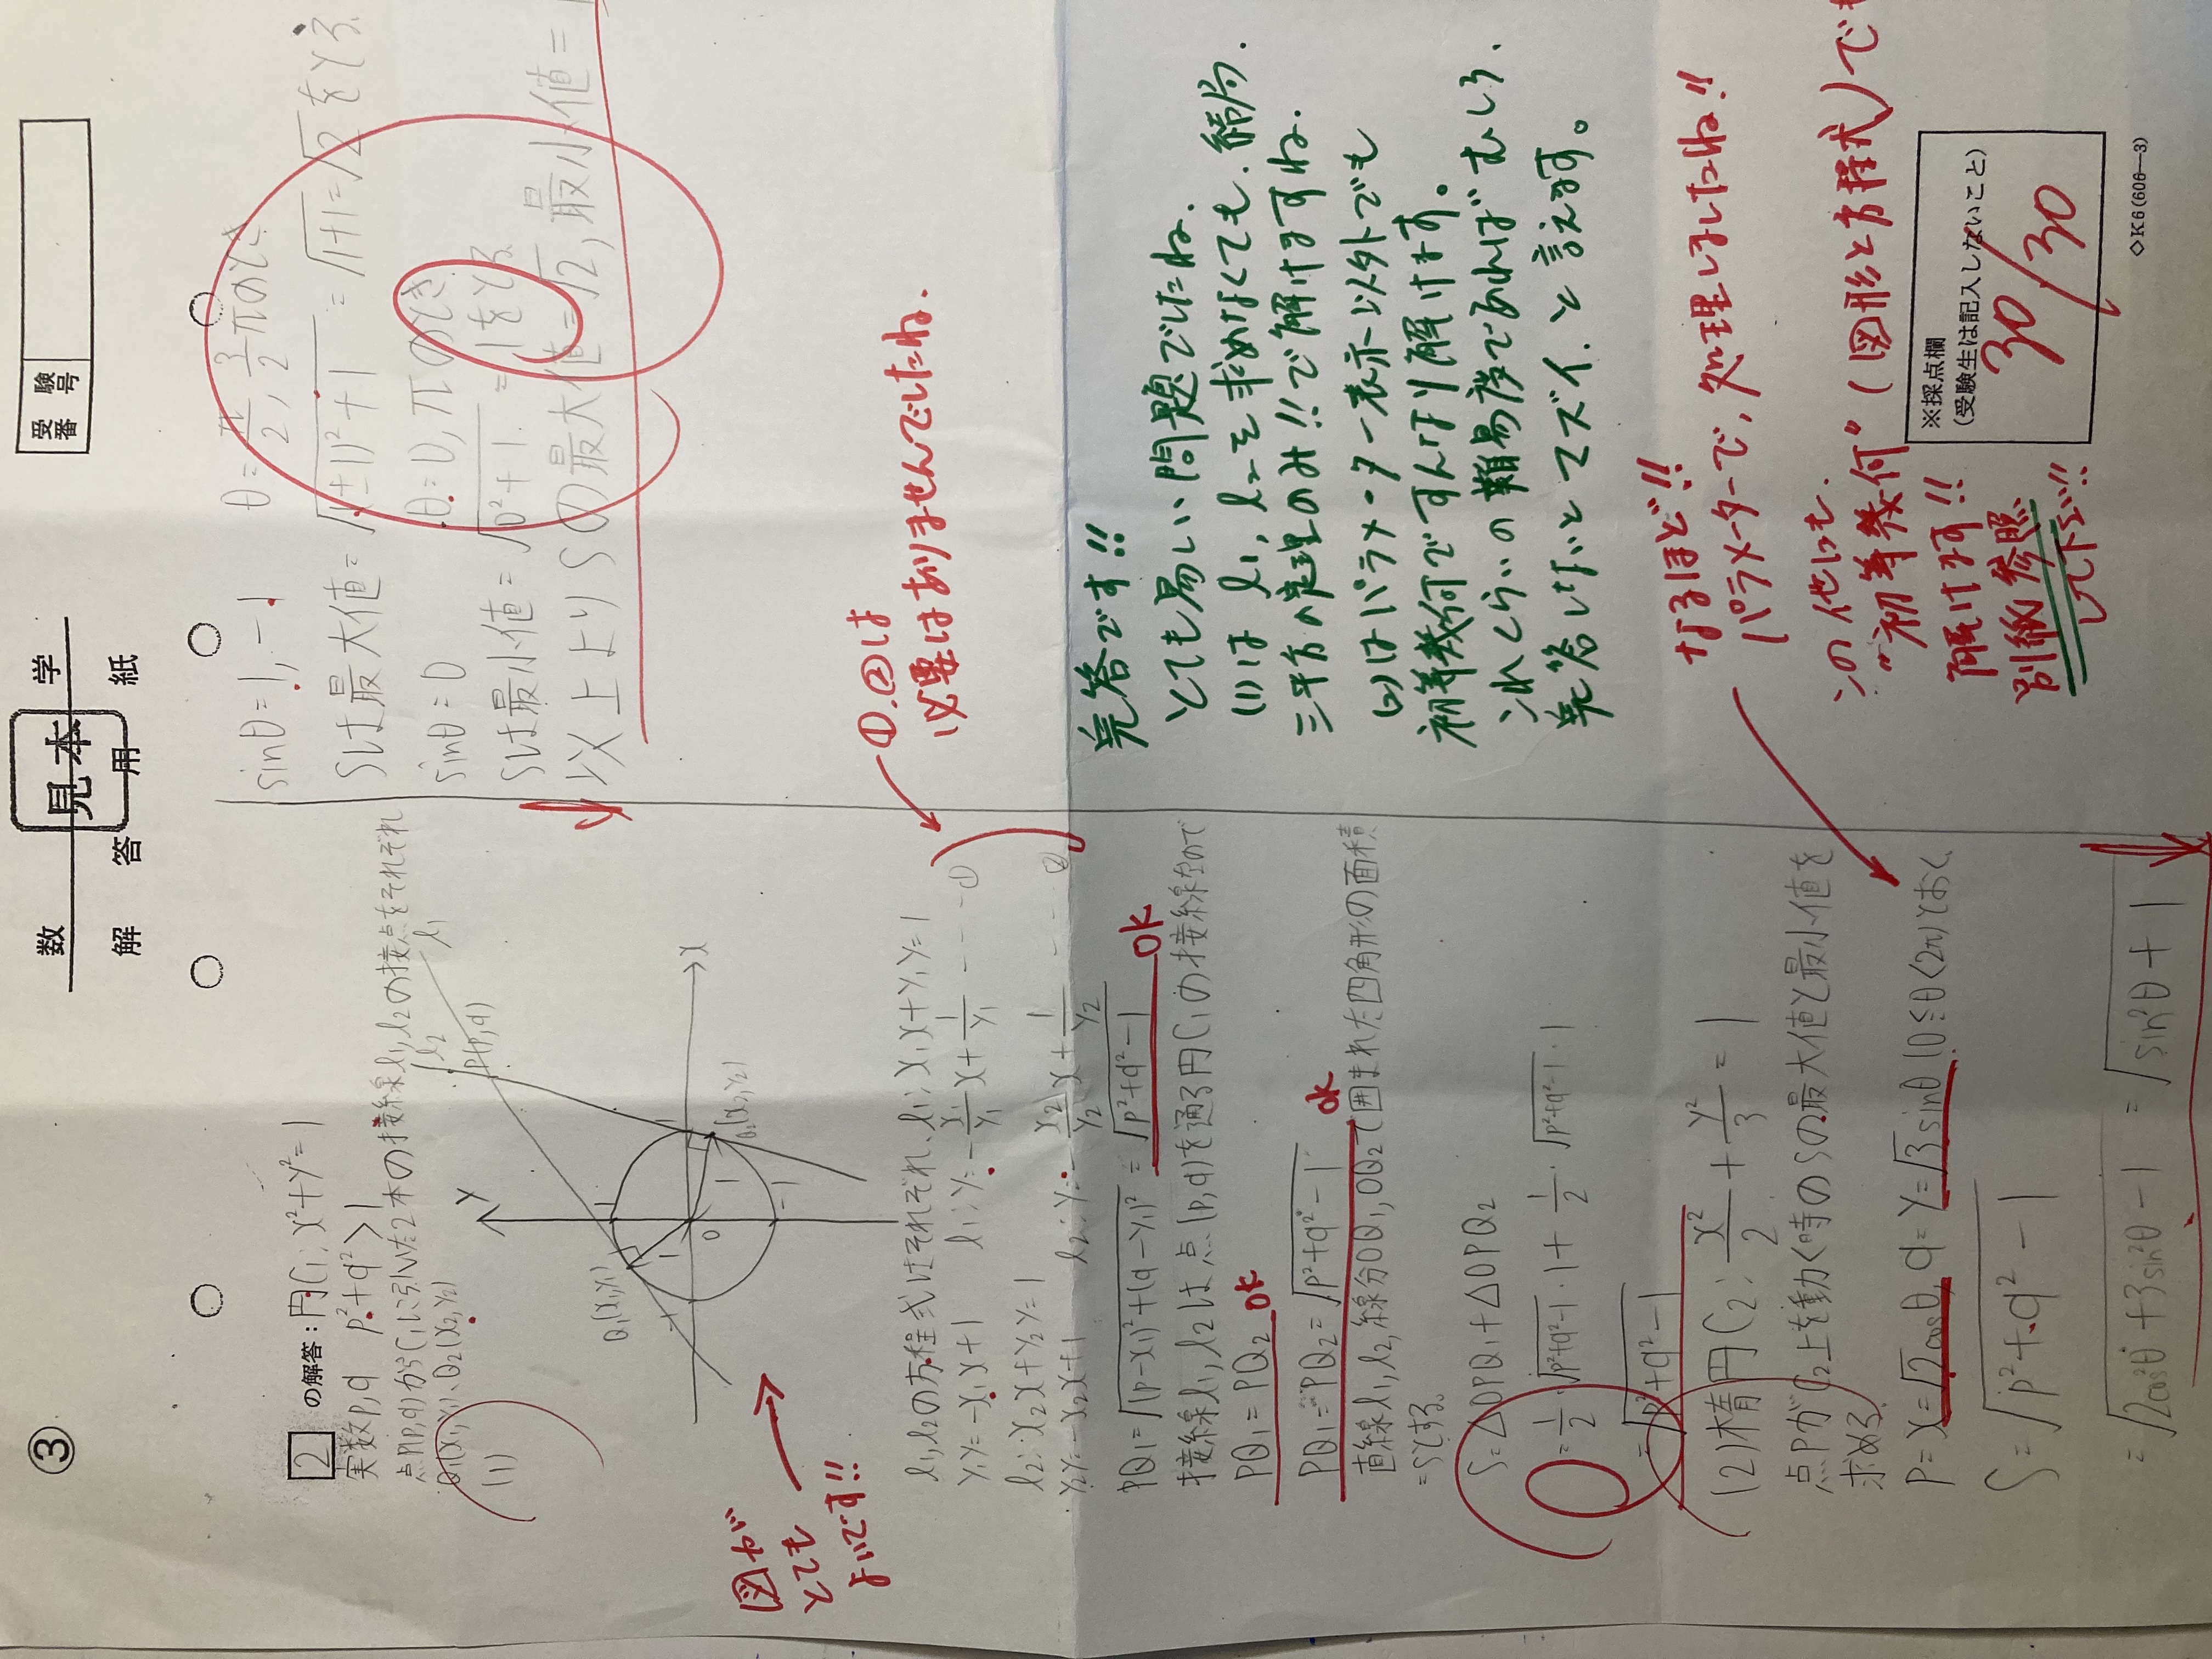 ③
数 学
見本
解 答 用 紙
受験番号
2 の解答:円C₁:x²+y²=1
実数p,q p²+q²>1
点P(p,q)からC₁に引いた2本の接線l₁,l₂の接点をそれぞれ
Q₁(x₁,y₁),Q₂(x₂,y₂)
(1)
y
x
O
l₁
l₂
P(p,q)
Q₁(x₁,y₁)
Q₂(x₂,y₂)
1
1
-1
図が
とても
よいです!!
l₁,l₂の方程式はそれぞれ、l₁:x₁x+y₁y=1
y₁y=-x₁x+1 l₁:y=-x₁/y₁x+1/y₁ ---①
l₂:x₂x+y₂y=1
y₂y=-x₂x+1 l₂:y=-x₂/y₂x+1/y₂ --②
PQ₁=√(p-x₁)²+(q-y₁)²=√p²+q²-1 OK
接線l₁,l₂は点(p,q)を通る円C₁の接線なので
PQ₁=PQ₂ OK
PQ₁=PQ₂=√p²+q²-1 OK
直線l₁,l₂,線分OQ₁,OQ₂で囲まれた四角形の面積
=Sとする。
S=△OPQ₁+△OPQ₂
=1/2・√p²+q²-1・1+1/2・√p²+q²-1・1
=√p²+q²-1
(2)楕円C₂:x²/2+y²/3=1
点PがC₂上を動く時のSの最大値と最小値を
求める。
p=x=√2cosθ,q=y=√3sinθ(0≦θ<2π)とおく、
S=√p²+q²-1
=√2cos²θ+3sin²θ-1=√sin²θ+1
sinθ=1,-1 θ=π/2,3/2πのとき
Sは最大値=√(±1)²+1=√1+1=√2をとる
sinθ=0 θ=0,πのとき
Sは最小値=√0²+1=1をとる
以上よりSの最大値=√2,最小値=1
①.②は
必要はありませんでしたね.
完答です!!
とても易しい問題でしたね.
(1)は l₁, l₂を求めなくても.結局.
三平方の定理のみ!!で解けますね.
(2)はパラメーター表示以外でも
初等幾何ですんなり解けます。
これくらいの難易度であればむしろ.
完答しないとマズイ.と言えます。
なるほど!!
パラメーターで,処理しましたね!!
この他にも.
“初等幾何”(図形と方程式)でも
解けます!!
別紙参照
して下さい!!
※採点欄
(受験生は記入しないこと)
30/30
◇K6(606—3)